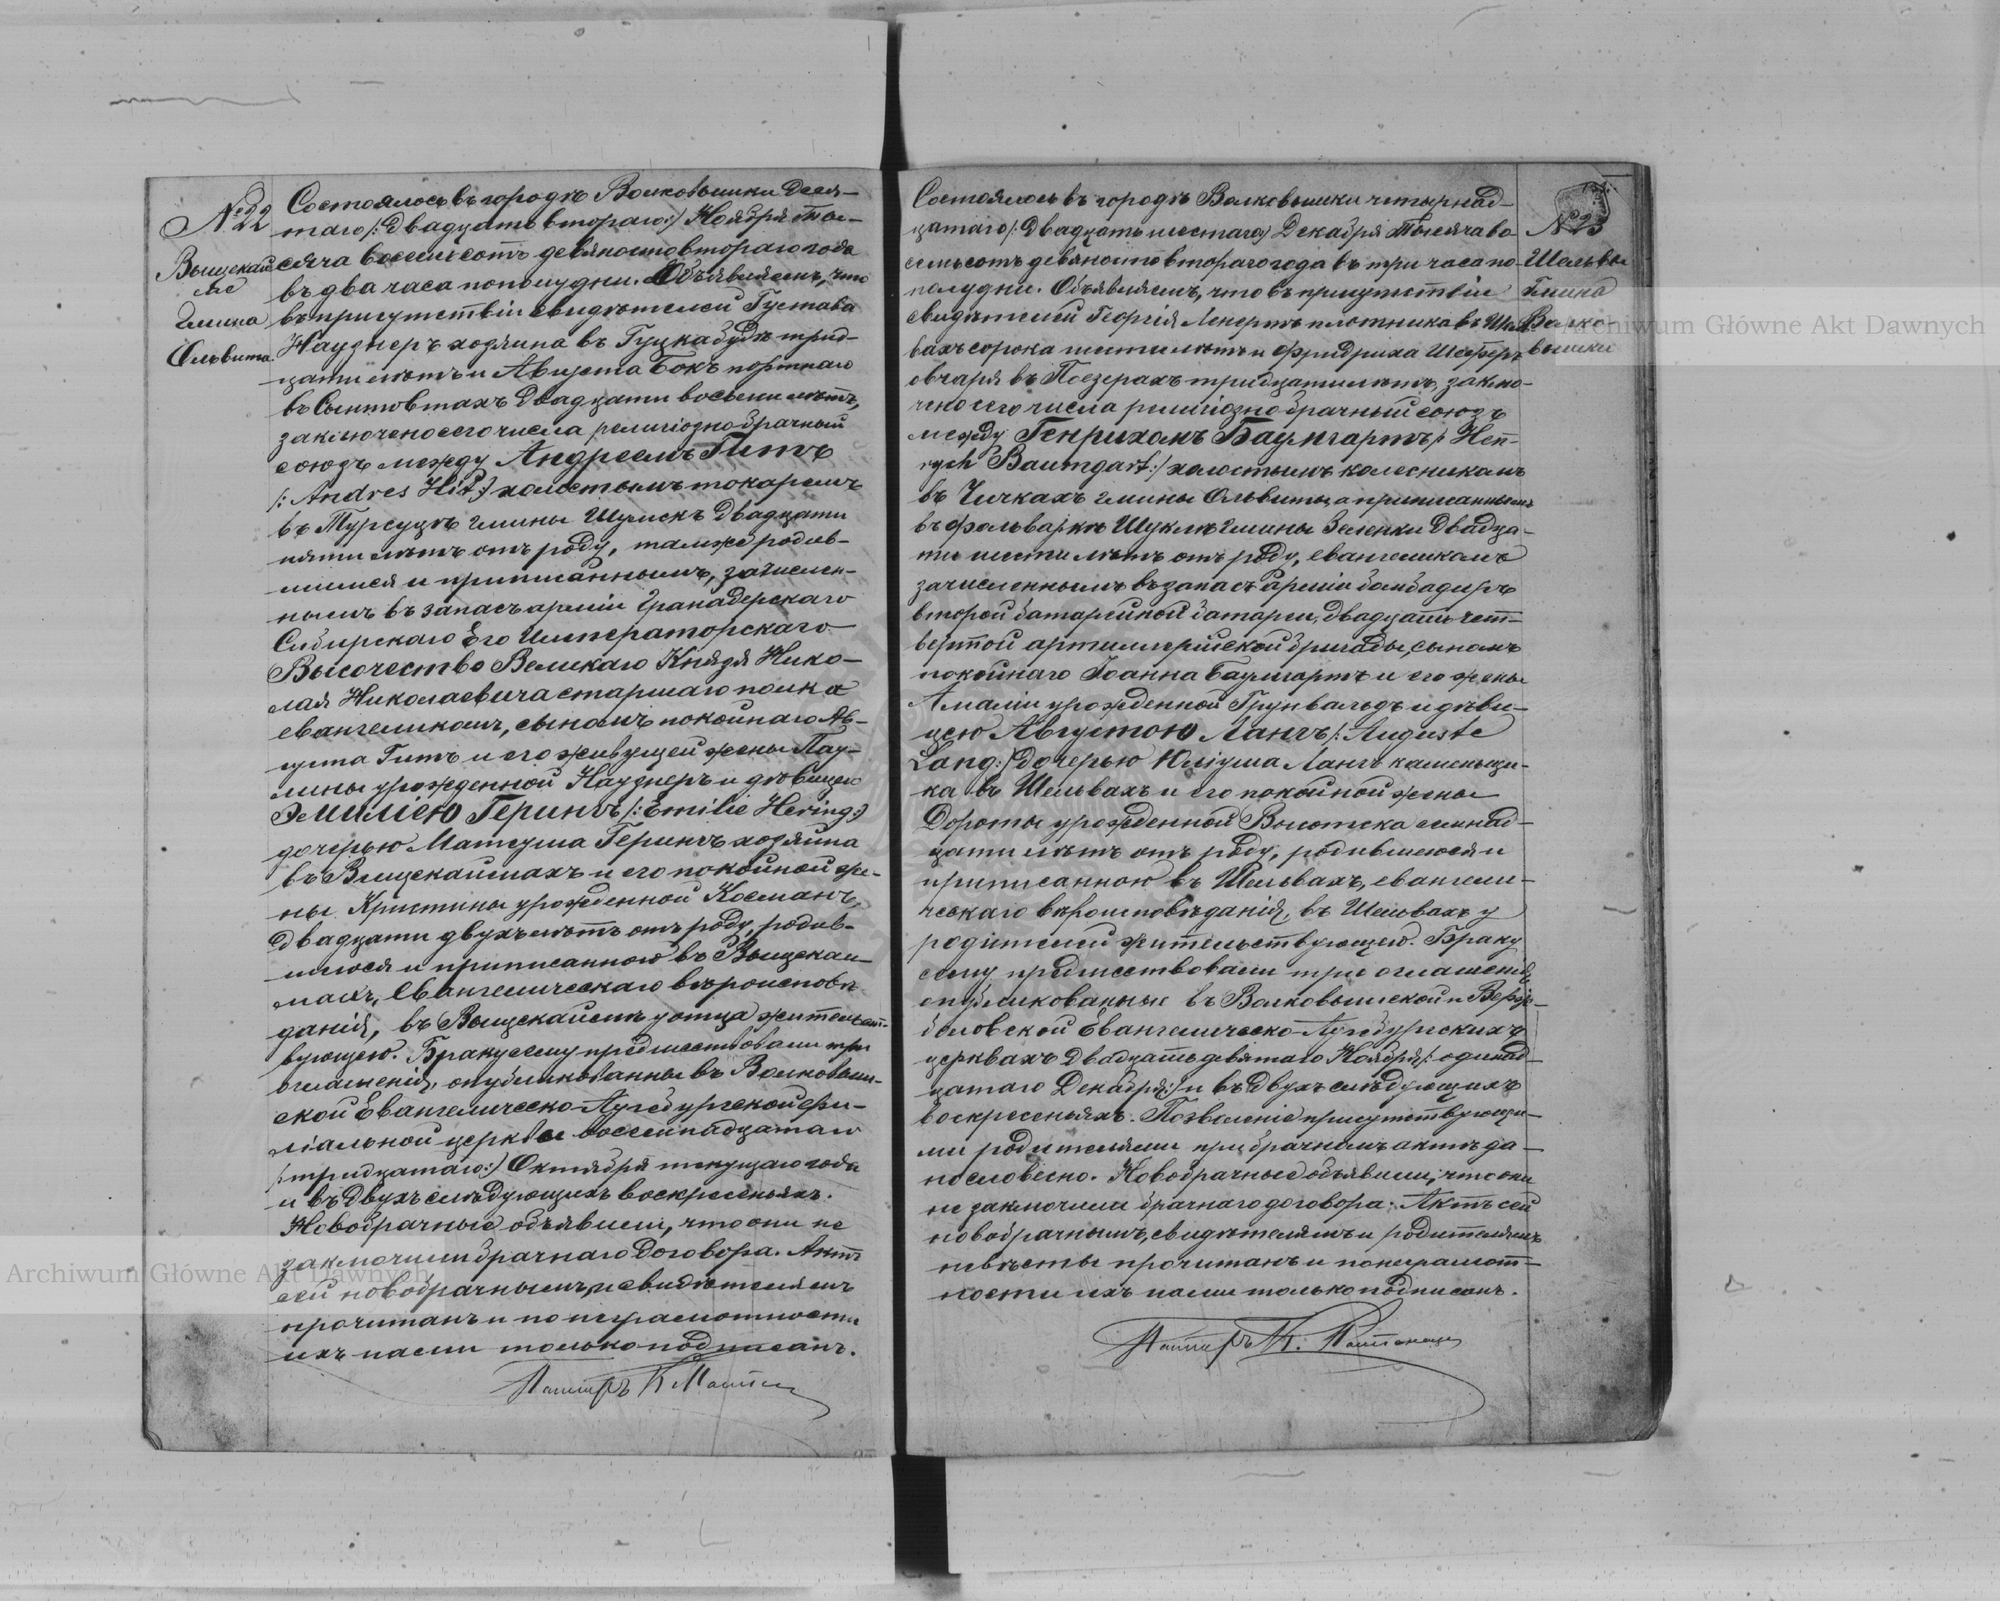 № 22
Выщекай
ме
Гмина
Ольвита
Состоялось въ городѣ Волковышки деся-
таго /:двадцать втораго:/ Ноября Ты-
сяча восемьсотъ девяносто втораго года
въ два часа пополудни. Объявляемъ, что
въ присутствіи свидѣтелей Густава
Науднеръ хозяина въ Гуцкабудѣ трид-
цати лѣтъ и Августа Бокъ портнаго
въ Сынтовтахъ двадцати восьми лѣтъ,
заключено сего числа религіозно брачный
союзъ между Андреемъ Гитъ
/:Andres Hit:/ холостымъ токаремъ
въ Турсуцѣ гмины Шумскъ двадцати
пяти лѣтъ отъ роду, тамже родив-
шимся и приписаннымъ, зачислен-
нымъ въ запасъ арміи Гранадерскаго
Сибирскаго Его Императорскаго
Высочество Великаго Князя Нико-
лая Николаевича старшаго полка
евангеликомъ, сыномъ покойнаго Ав-
густа Гитъ и его живущей жены Пау-
лины урожденной Науднеръ и дѣвицею
Эмиліею Герингъ /:Emilie Hering:/
дочерью Матеуша Герингъ хозяина
въ Выщекаймахъ и его покойной же-
ны Кристины урожденной Косманъ,
двадцати двухъ лѣтъ отъ роду, родив-
шеюся и приписанною въ Выщекай-
махъ, Евангелическаго вѣроисповѣ-
данія, въ Выщекаймѣ у отца жительст-
вующею. Браку сему предшествовали три
оглашенія, опубликованныя въ Волковыш-
ской Евангелическо-Аугсбургской фи-
ліальной церкви восемнадцатаго
/:тридцатаго:/ Октября текущаго года
и въ двухъ слѣдующихъ воскресеньяхъ.
Новобрачные объявили, что они не
заключили брачнаго договора. Актъ
сей новобрачнымъ и свидѣтелямъ
прочитанъ и по неграмотности
ихъ нами только подписанъ.
Пасторъ К.
№ 23
Шельвы
Гмина
Волко-
вышки
Состоялось въ городѣ Волковышки четырнад-
цатаго /:двадцать шестаго:/ Декабря Тысяча во-
семьсотъ девяносто втораго года въ три часа по-
полудни. Объявляемъ, что въ присутствіи
свидѣтелей Георгія Ленертъ плотника въ Шель-
вахъ сорока шести лѣтъ и Фридриха Шеферъ
овчаря въ Поезерахъ тридцати лѣтъ, заклю-
чено сего числа религіозно брачный союзъ
между Генрихомъ Баумгартъ /:Hen-
rych Baumgart:/ холостымъ колесникомъ
въ Чичкахъ гмины Ольвита, а приписаннымъ
въ фольваркѣ Шуклѣ гмины Зеленки двадца-
ти шести лѣтъ отъ роду, евангеликомъ
зачисленнымъ въ запасъ арміи бомбадиръ
второй батарейной батареи, двадцать чет-
вертой артиллерійской бригады, сыномъ
покойнаго Іоанна Баумгартъ и его жены
Амаліи урожденной Грунвальдъ и дѣви-
цею Августою Лангъ /:Auguste
Lang:/ дочерью Юліуша Лангъ каменьщи-
ка въ Шельвахъ и его покойной жены
Дороты урожденной Высотска семнад-
цати лѣтъ отъ роду, родившеюся и
приписанною въ Шельвахъ, евангели-
ческаго вѣроисповѣданія, въ Шельвахъ у
родителей жительствующею. Браку
сему предшествовали три оглашенія
опубликованныя въ Волковышской и Верж-
боловской Евангелическо-Аугсбургскихъ
церквахъ двадцать девятаго Ноября /:одинад-
цатаго Декабря:/ и въ двухъ слѣдующихъ
воскресеньяхъ. Позволеніе присутствующи-
ми родителями при брачномъ актѣ да-
но словесно. Новобрачные объявили, что они
не заключили брачнаго договора. Актъ сей
новобрачнымъ, свидѣтелямъ и родителямъ
невѣсты прочитанъ и по неграмот-
ности ихъ нами только подписанъ.
Пасторъ К.
Archiwum Główne Akt Dawnych
Archiwum Główne Akt Dawnych